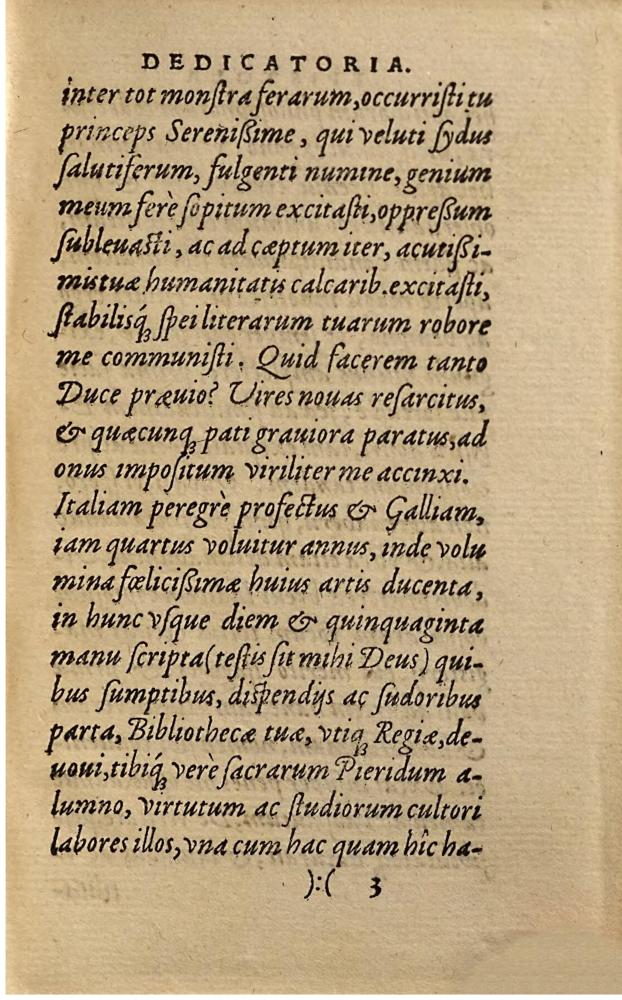 DEDICATORIA.
inter tot monſtra ferarum, occurriſti tu
princeps Sereniſſime, qui veluti ſydus
ſalutiferum, fulgenti numine, genium
meum ferè ſopitum excitaſti, oppreſſum
ſubleuaſti, ac ad cæptum iter, acutiſſi-
mis tuæ humanitatis calcarib. excitaſti,
ſtabilisq́ꝫ ſpei literarum tuarum robore
me communiſti. Quid facerem tanto
Duce præuio? Vires nouas reſarcitus,
& quæcunqꝫ pati grauiora paratus, ad
onus impoſitum viriliter me accinxi.
Italiam peregrè profectus & Galliam,
iam quartus voluitur annus, inde volu
mina fœliciſſimæ huius artis ducenta,
in hunc vſque diem & quinquaginta
manu ſcripta (teſtis ſit mihi Deus) qui-
bus ſumptibus, diſpendijs ac ſudoribus
parta, Bibliothecæ tuæ, vtiqꝫ Regiæ, de-
uoui, tibiq́ꝫ vere ſacrarum Pieridum a-
lumno, virtutum ac ſtudiorum cultori
labores illos, vna cum hac quam hîc ha-
):( 3